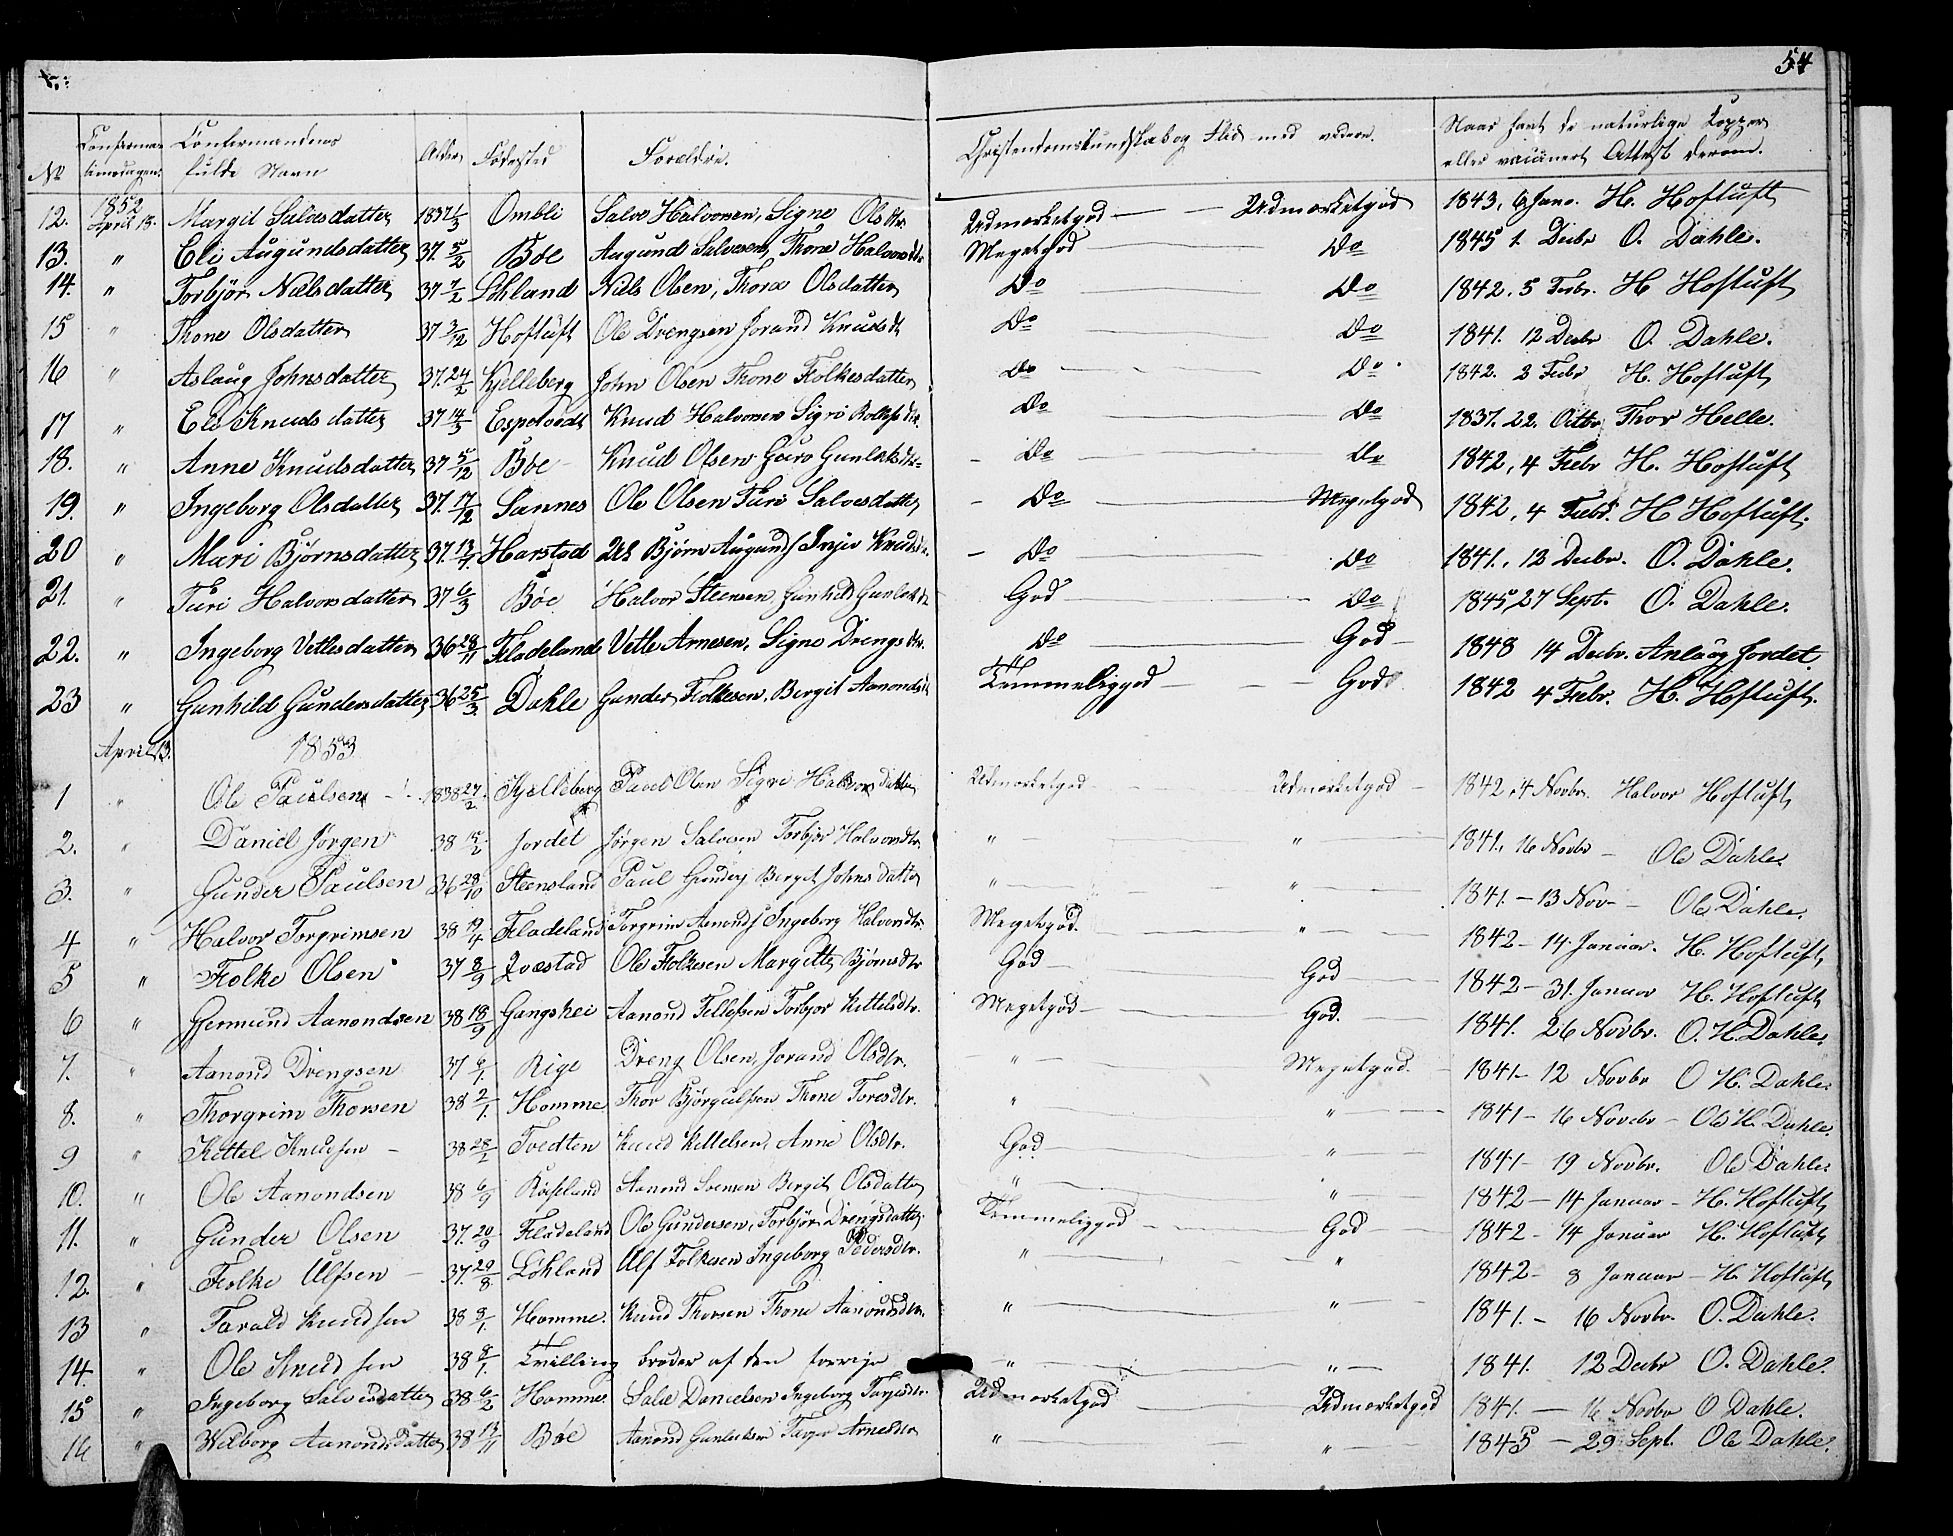 54
No Confirmationsdagen. Confirmandens fulde Navn Alder Fødested Forældre. Christendomskundskab og Flid med videre. Naar havt de naturlige Kopper eller vaccinert Attest derom.
12. 1852 April 13. Margit Salvesdatter 1837 1/3 Ombli Salve Halvorsen, Signe Olsdtr. Udmærketgod — — Udmærketgod 1843, 6 Janr. H. Hoftuft
13. " Eli Augundsdatter 37. 5/2 Bøe Augund Salvesen, Thone Halvorsdtr. Megetgod Do 1845 1. Decbr O. Dahle.
14. " Torbjør Nielsdatter 37 7/2 Löhland Niels Olsen, Thora Olsdatter Do — Do 1842. 5 Febr. H Hoftuft
15 " Thone Olsdatter 37 3/12 Hoftuft Ole Drengsen Jorand Knudsdt Do — Do 1841. 12 Decbr O. Dahle.
16 " Aslaug Johnsdatter 37. 24/2 Kjelleberg John Olsen Thone Folkesdatter Do — Do 1842. 2 Febr H. Hoftuft
17 " Eli Knudsdatter 37 14/3 Espetvedt Knud Halvorsen Sigri Rolfsdtr. Do — Do 1837. 22. Octbr Thor Helle.
18. " Anne Knudsdatter 37 5/12 Bøe Knud Olsen Guro Gunleksdtr - Do — Do 1842, 4 Febr H. Hoftuft
19. " Ingeborg Olsdatter 37. 17/12 Sannes Ole Olsen Turi Salvesdatter - Do — Megetgod 1842, 4 Febr. H Hoftuft.
20 " Mari Bjørnsdatter 37. 13/7 Harstad Bjørn Augunds Knudsdtr. - Do — Do 1841., 12 Decbr. O. Dahle.
21. " Turi Halvorsdatter 37 6/3 Bøe Halvor Steensen Gunhild Gunleksdt God — Do 1845, 27 Sept. O. Dahle.
22. " Ingeborg Vetlesdatter 36 28/11 Fladeland Vetle Arnesen, Signe Drengsdtr. Do — God 1848 14 Decbr. Anlaug Jordet
23 " Gunhild Gundersdatter 36 25/3 Dahle Gunder Folkesen, Bergit Aanonds Temmeliggod — God 1842 4 Febr. H. Hoftuft.
April 13. 1853
1 " Ole Paulsen 1838 27/2 Kjelleberg Pavel Olsen Signe Halvorsdatter Udmærketgod — Udmærketgod 1842, 4 Novbr. Halvor Hoftuft
2. " Daniel Jørgen 38 15/2 Jordet Jørgen Salvesen Torbjør Halvorsdtr " — " — 1841. 16 Novbr — Ole Dahle.
3. " Gunder Paulsen 36 28/10 Steensland Paul Gunders Bergit Johnsdatter " — " — 1841. — 13 Nov — Ole Dahle.
4 " Halvor Torgrimsen 38 19/4 Fladeland Torgrim Aanonds Ingeborg Halvorsdtr. Megetgod. " — 1842 — 14 Januar. H. Hoftuft
5 " Folke Olsen 37 8/9 Qvæstad Ole Folkesen Margitte Bjørnsdtr God — God — 1842 — 31. Januar H. Hoftuft
6 " Gjermund Aanondsen 38 18/9 Gangshei Aanond Tellefsen Torbjor Kittelsdtr. Megetgod — God. — 1841. 26 Novbr. O. H. Dahle.
7. " Aanond Drengsen 37 6/1. Rige Dreng Olsen, Jorand Olsdtr. " — Megetgod. 1841 — 12 Novbr O H. Dahle.
8. " Thorgrim Thorsen 38 2/1. Homme Thor Bjørgulfsen Thone Toresdtr. " — " — 1841 — 16 Novebr — Ole H. Dahle.
9 " Kettel Knudsen — 38 28/2 Tvedten Knud Kittelsen, Anne Olsdtr. God — " — 1841 — 19 Novbr. Ole Dahle.
10. " Ole Aanondsen 38 6/9 Røiseland Aanond Svensen Bergit Olsdatter " — " — 1842 — 14 Januar — H. Hoftuft
11. " Gunder Olsen 37. 20/9 Fladeland Ole Gundersen, Torbjør Drengsdatter Temmeliggod — God — 1842 — 14 Januar H. Hoftuft
12. " Folke Ulfsen — 37. 29/8. Löhland Ulf Folkesen Ingeborg Pedersdtr. " — " 1842 — 8 Januar — H. Hoftuft
13 " Tarald Knudsen 38 9/1. Homme. Knud Thorsen Thone Aanondsdtr. " — " — 1841. — 16 Novbr. O. Dahle.
14. " Ole Knudsen 38 9/1. Tvilling broder af den forrige " — " — 1841. 12 Decbr O. Dahle.
15 " Ingeborg Salvesdatter 38 6/2 Homme. Salve Danielsen Ingeborg Tarjesdtr. Udmærketgod — Udmærketgod 1841. — 16 Novbr O Dahle.
16 " Wilborg Aanondsdatter 38 13/11 Bøe Aanond Gunleksen Arnesdtr " — " — 1845 — 29 Sept. Ole Dahle.